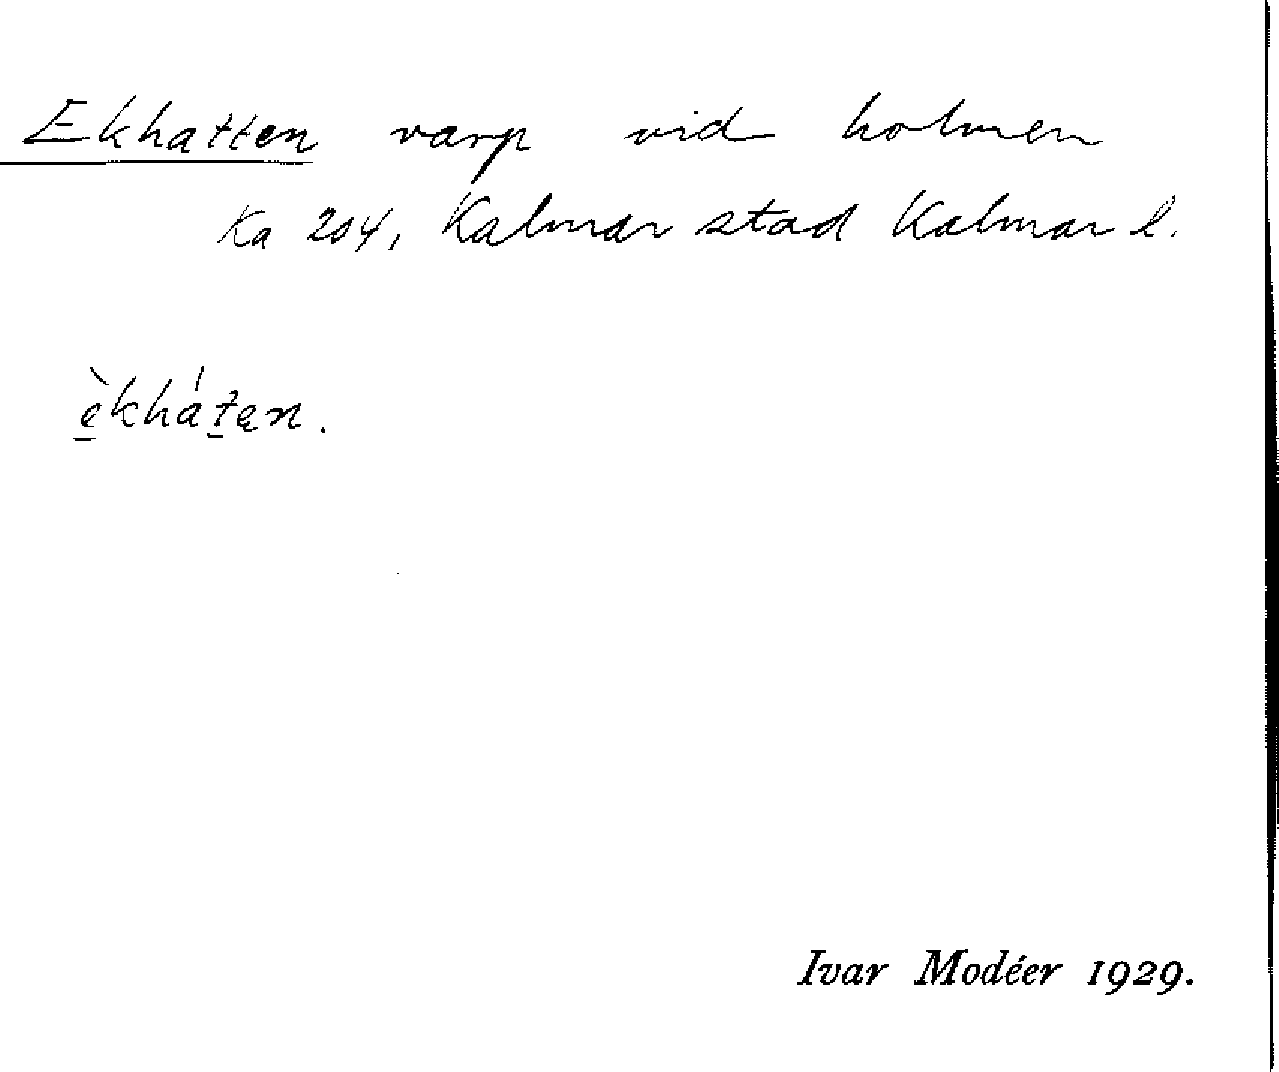 Ekhatten varp vid holmen
Ka 204, Kalmar stad Kalmar l.
è̲khát̲ęn.
Ivar Modéer 1929.